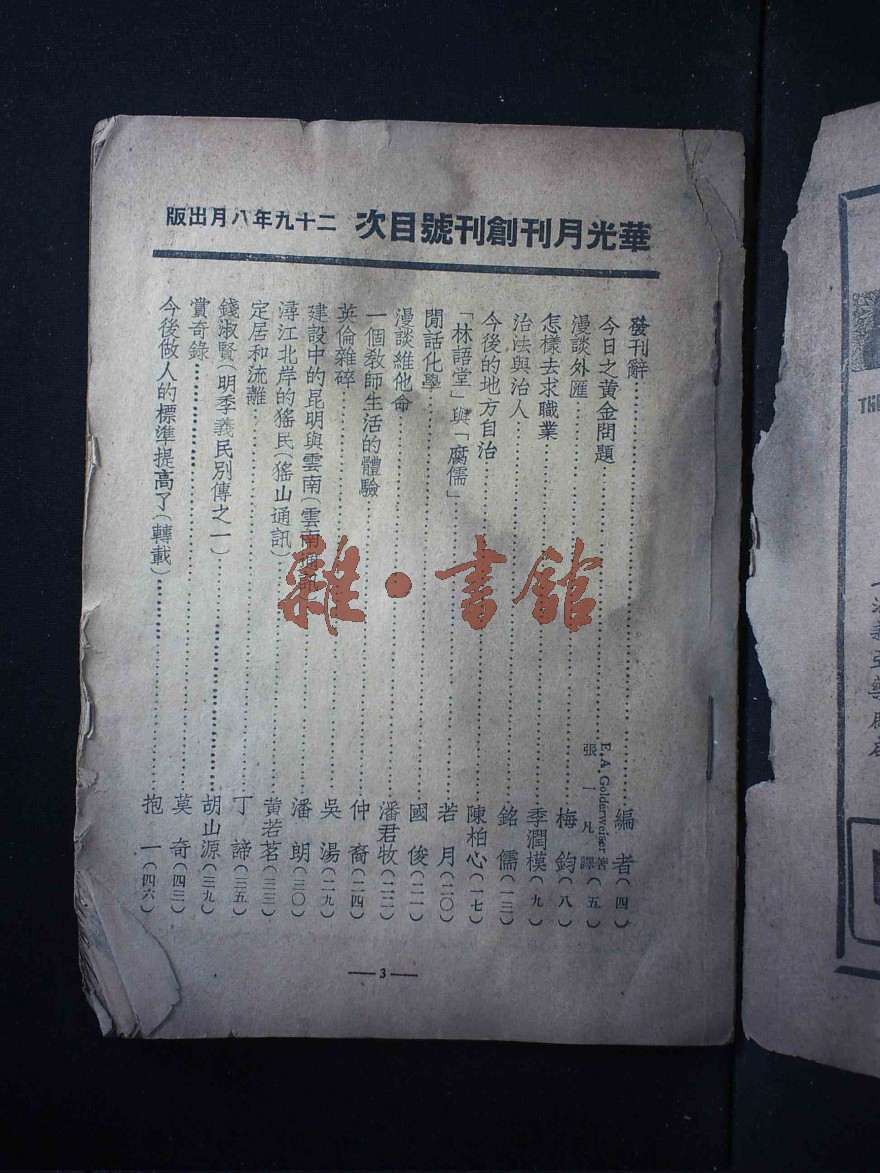 華光月刊創刊號目次 二十九年八月出版
發刊辭……編者(四)
今日之黃金問題……E.A.Golderweiser著 張一凡譯(五)
漫談外匯……梅鈞(八)
怎樣去求職業……季潤模(九)
治法與治人……銘儒(一三)
今後的地方自治……陳柏心(一七)
「林語堂」與「腐儒」……若月(二〇)
閒話化學……國俊(二一)
漫談維他命……潘君牧(二二)
一個教師生活的體驗……仲裔(二四)
英倫雜碎……吳湯(二九)
建設中的昆明與雲南(雲南通訊)……潘朗(三〇)
潯江北岸的猺民(猺山通訊)……黃若茗(三三)
定居和流離……丁諦(三五)
錢淑賢(明季義民別傳之一)……胡山源(三九)
賞奇錄……莫奇(四三)
今後做人的標準提高了(轉載)……抱一(四六)
—3—
雜·書館
TH